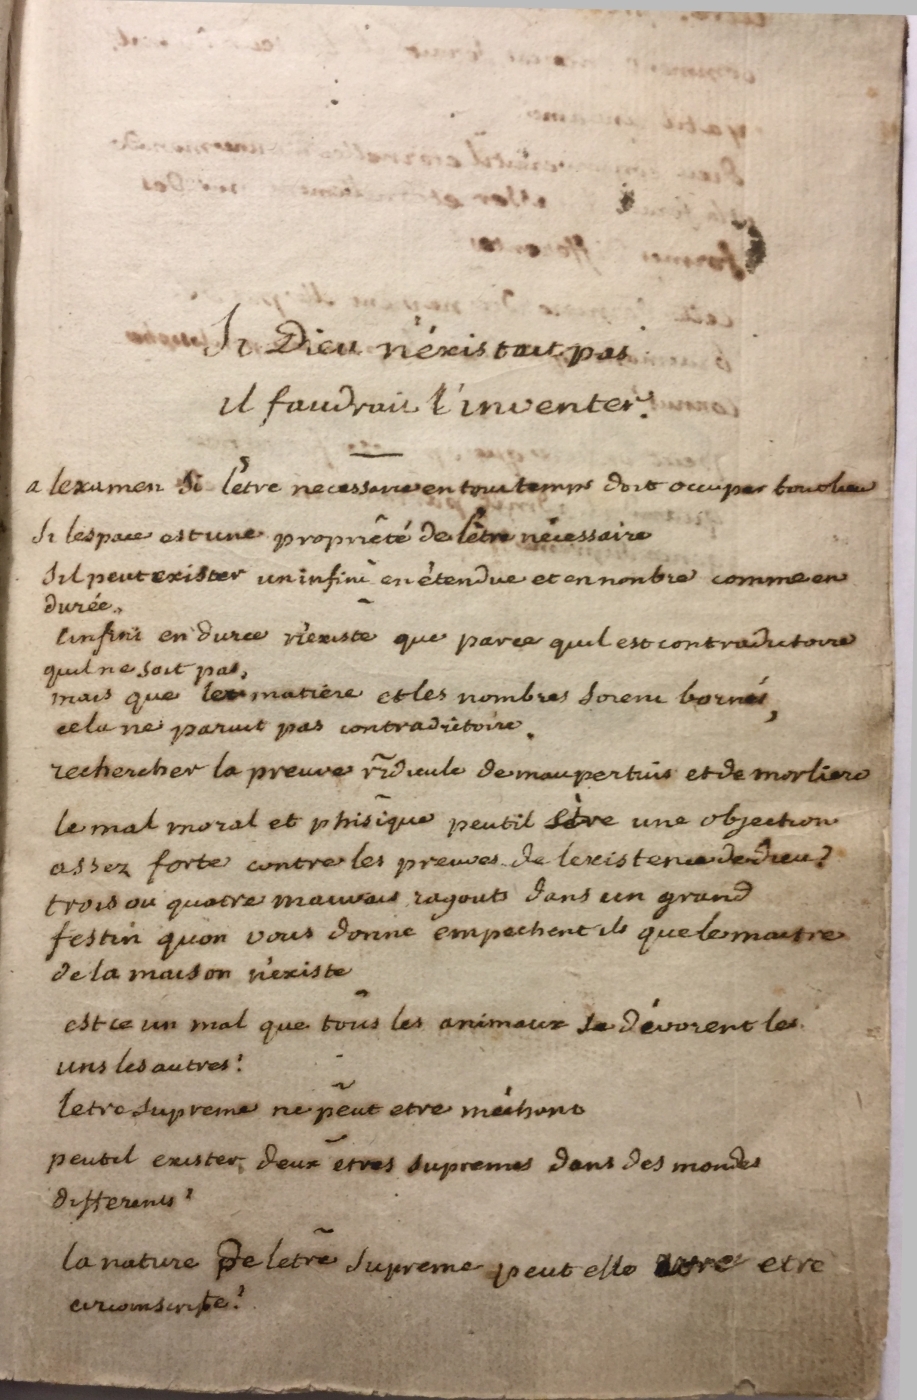 Si Dieu n'éxistait pas
il faudrait l'inventer.
a lexamen si l'etre necessaire en tout temps doit occuper tout lieu
si lespace est une propriété de l'être nécessaire
sil peut exister un infini en étendue et en nonbre comme en
durée,
linfini en durée n'existe que parce quil est contradictoire
quil ne soit pas,
mais que la matiere et les nombres soient bornés,
cela ne parait pas contradictoire.
rechercher la preuve ridicule de maupertuis et de morliere
le mal moral et phisique peutil être une objection
assez forte contre les preuves de lexistence de dieu?
trois ou quatre mauvais ragouts dans un grand
festin quon vous donne empechent ils que le maitre
de la maison n'existe
est ce un mal que tous les animaux se dévorent les
uns les autres?
letre supreme ne peut etre méchant
peutil exister deux etres supremes dans des mondes
differents?
la nature de letre supreme peut elle etre
circonscripte?